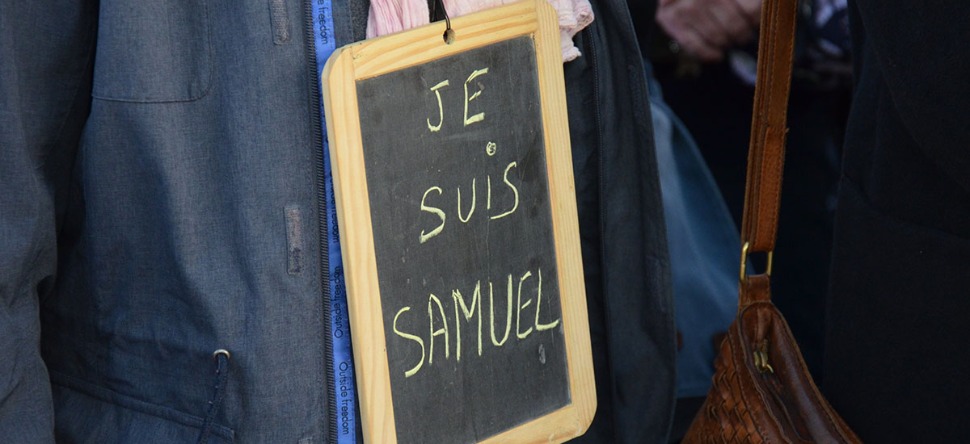 JE
SUIS
SAMUEL
Outside freedom
Outside freedom